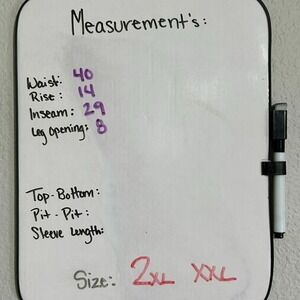 Measurement's:
Waist: 40
Rise: 14
Inseam: 29
Leg opening: 8
Top-Bottom:
Pit-Pit:
Sleeve Length:
Size: 2XL XXL